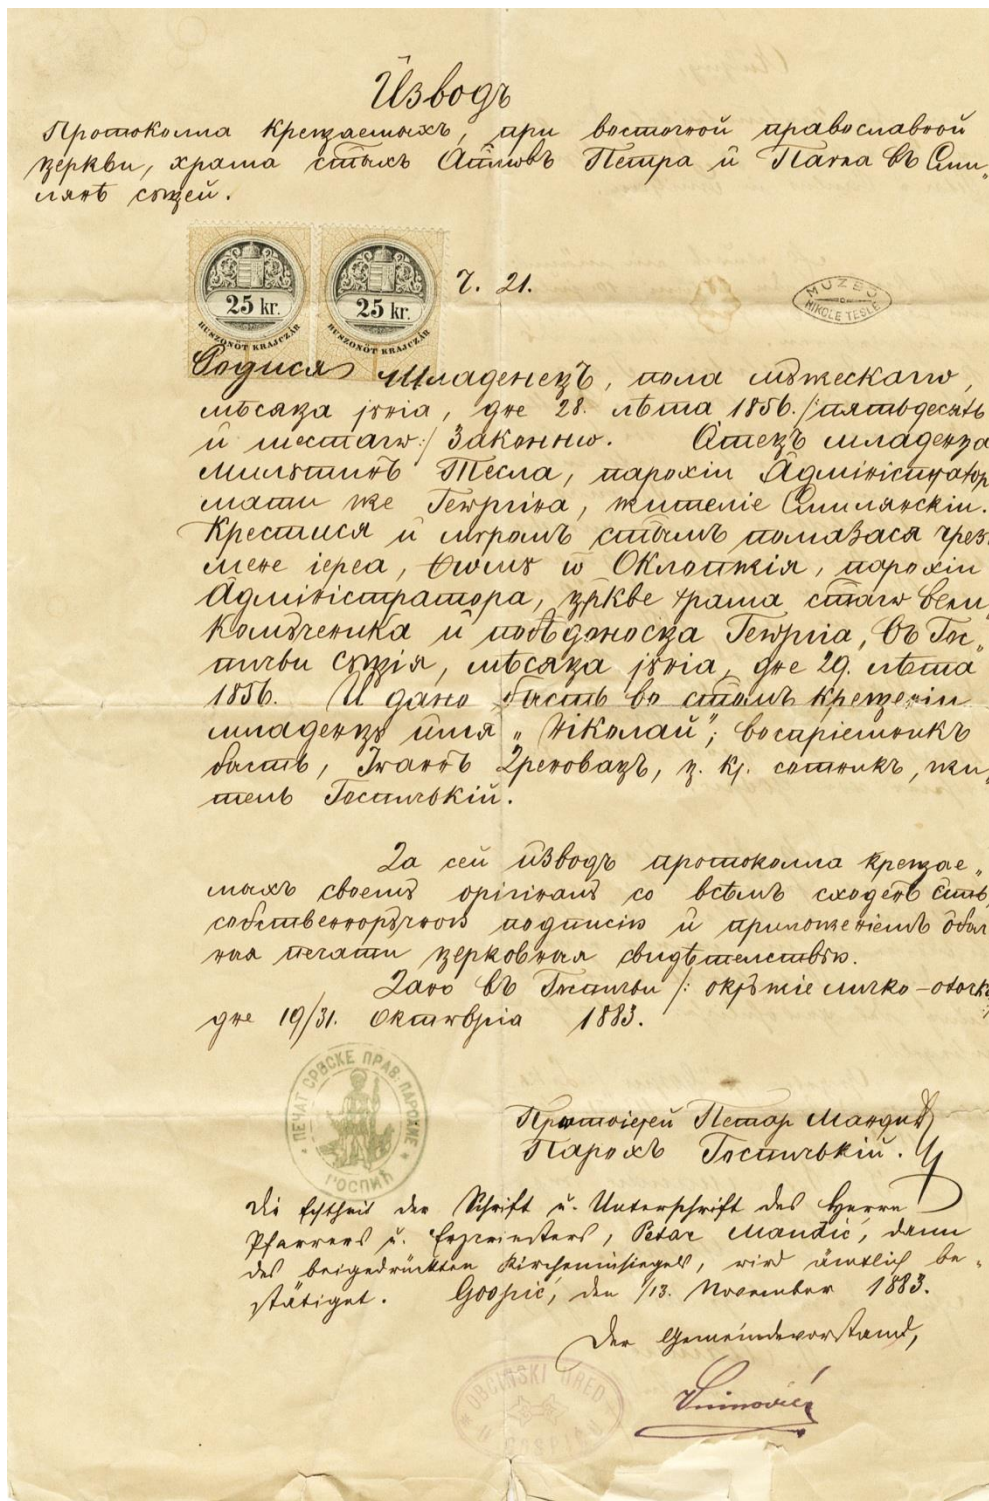 Изводъ
Протоколла крещаемыхъ, при восточной православной
церкви, храма стыхъ Апловъ Петра и Павла въ Сми„
лянѣ сꙋщей.
25 kr.
HUSZONÖT KRAJCZÁR
25 kr.
HUSZONÖT KRAJCZÁR
Ч. 21.
MUZEJ
NIKOLE TESLE
Родися Младенецъ, пола мꙋжескагѡ,
мѣсяца јꙋніа, дне 28. лѣта 1856. /:пятьдесять
и шестагѡ:/ Законнѡ. Отецъ младенца
Милꙋтинъ Тесла, парохіи Адміністратор
мати же Геѡргина, жителіе Смилянскіи.
Крестися и мѵромъ стымъ помазася чрез
мене іереа, Ѳомꙋ ѿ Оклопжія, парохіи
Адміністратора, цркве храма стагѡ Вели„
комꙋченика и побѣдоносца Геѡргіа, въ Гос„
пичѣ сꙋщія, мѣсяца јꙋніа, дне 29. лѣта
1856. И дано бысть во стомъ крещеніи
младенцꙋ имя „Ніколай"; воспріемникъ
бысть, Јваннъ Дреновацъ, ц. кр. сотникъ, жи„
тель Госпичькій.
Да сей изводъ протоколла крещае„
мыхъ своемꙋ оріґіналꙋ со всѣмъ сходенъ єсть,
собственнорꙋчною подписію и приложеніемъ обыч
ная печати церковная свидѣтелствꙋю.
Дано въ Госпичѣ /: окрꙋжіе личко-оточк
дне 19/31. Октѡвріа 1883.
ПЕЧАТ СРБСКЕ ПРАВ. ПАРОХИЕ
ГОСПИЋ
Протоіереи Петар Мандић
Парохъ Госпичькій.
Die Echtheit der Schrift u. Unterschrift des Herrn
Pfarrers u. Erzpriesters, Petar Mandić, dann
des beigedrückten Kircheninsiegels, wird ämtlich be„
stätiget. Gospić, den 1/13. November 1883.
Der Gemeindevorstand,
OBĆINSKI URED